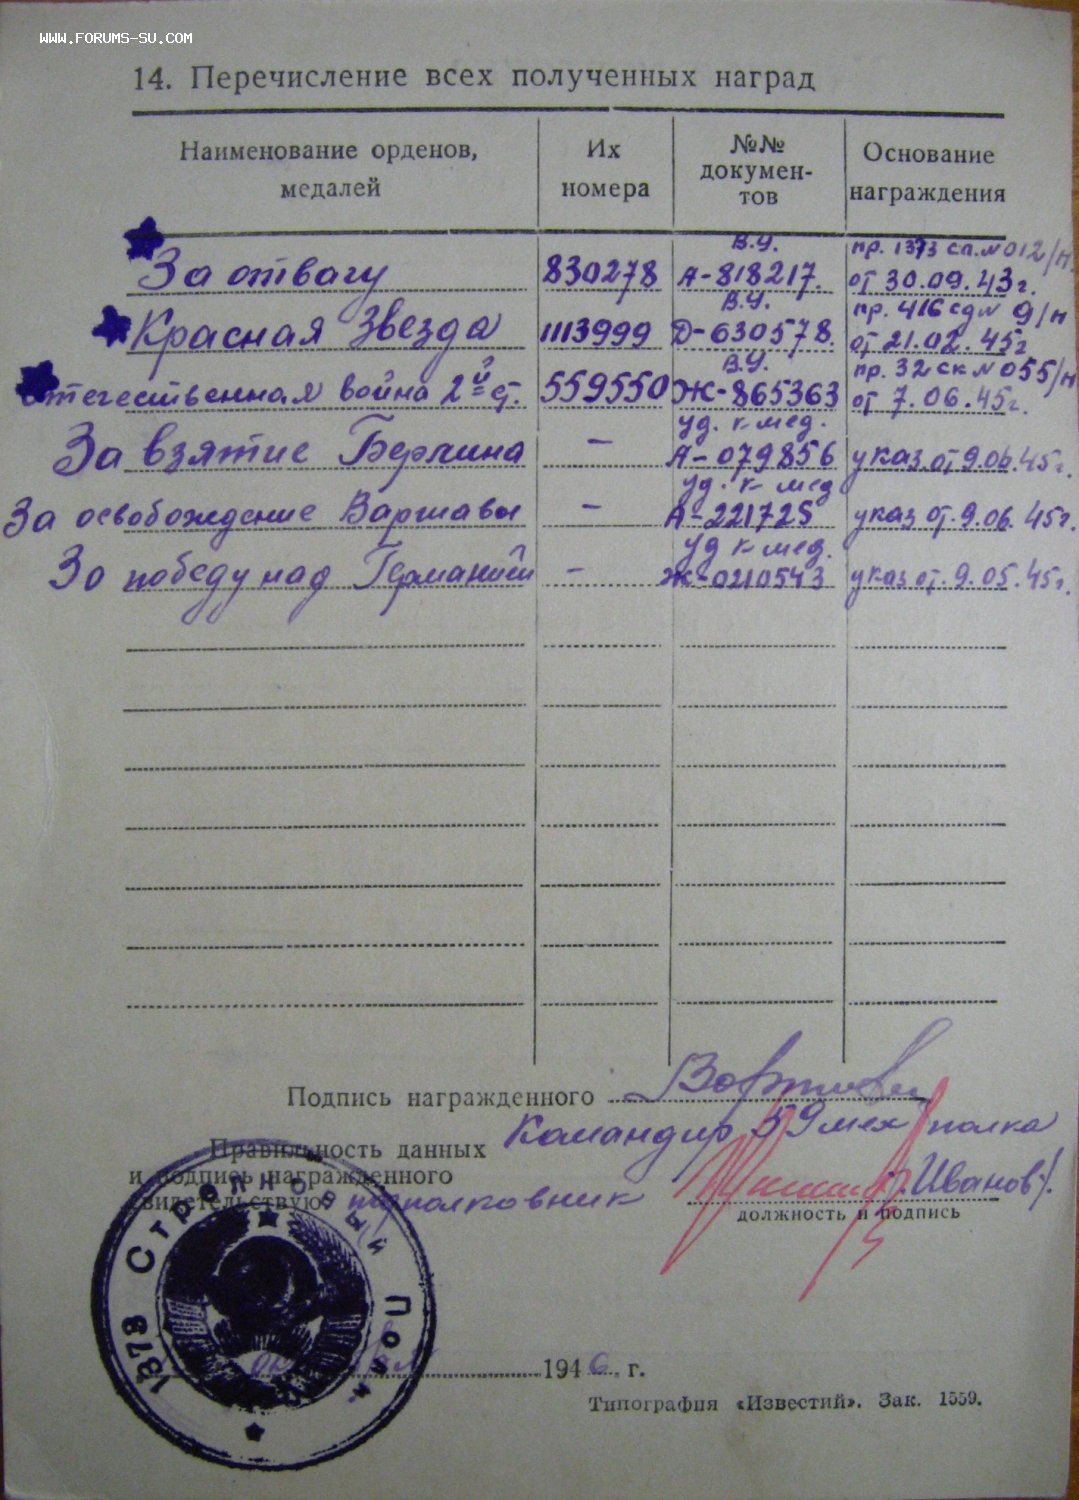 WWW.FORUMS-SU.COM
14. Перечисление всех полученных наград
Наименование орденов, медалей
Их номера
№№ докумен-тов
Основание награждения
За отвагу 830278 В.У. А-818217. пр. 1373 сп. № 012/н от 30.09.43г.
Красная Звезда 1113999 В.У. Д-630578. пр. 416 сд № 9/н от 21.02.45г
Отечественная война 2й ст. 559550 В.У. Ж-865363 пр. 32 ск № 055/н от 7.06.45г.
За взятие Берлина – уд. к мед. А-079856 указ от 9.06.45г.
За освобождение Варшавы – уд. к мед А-221725 указ от 9.06.45г.
За победу над Германией – уд к мед. Ж-0210543 указ от 9.05.45г.
Подпись награжденного
Командир 59 мех полка
Правильность данных
и подпись награжденного
свидетельствую: подполковник /Иванов/.
должность и подпись
1373 Стрелковый Полк
1946 г.
Типография «Известий». Зак. 1559.